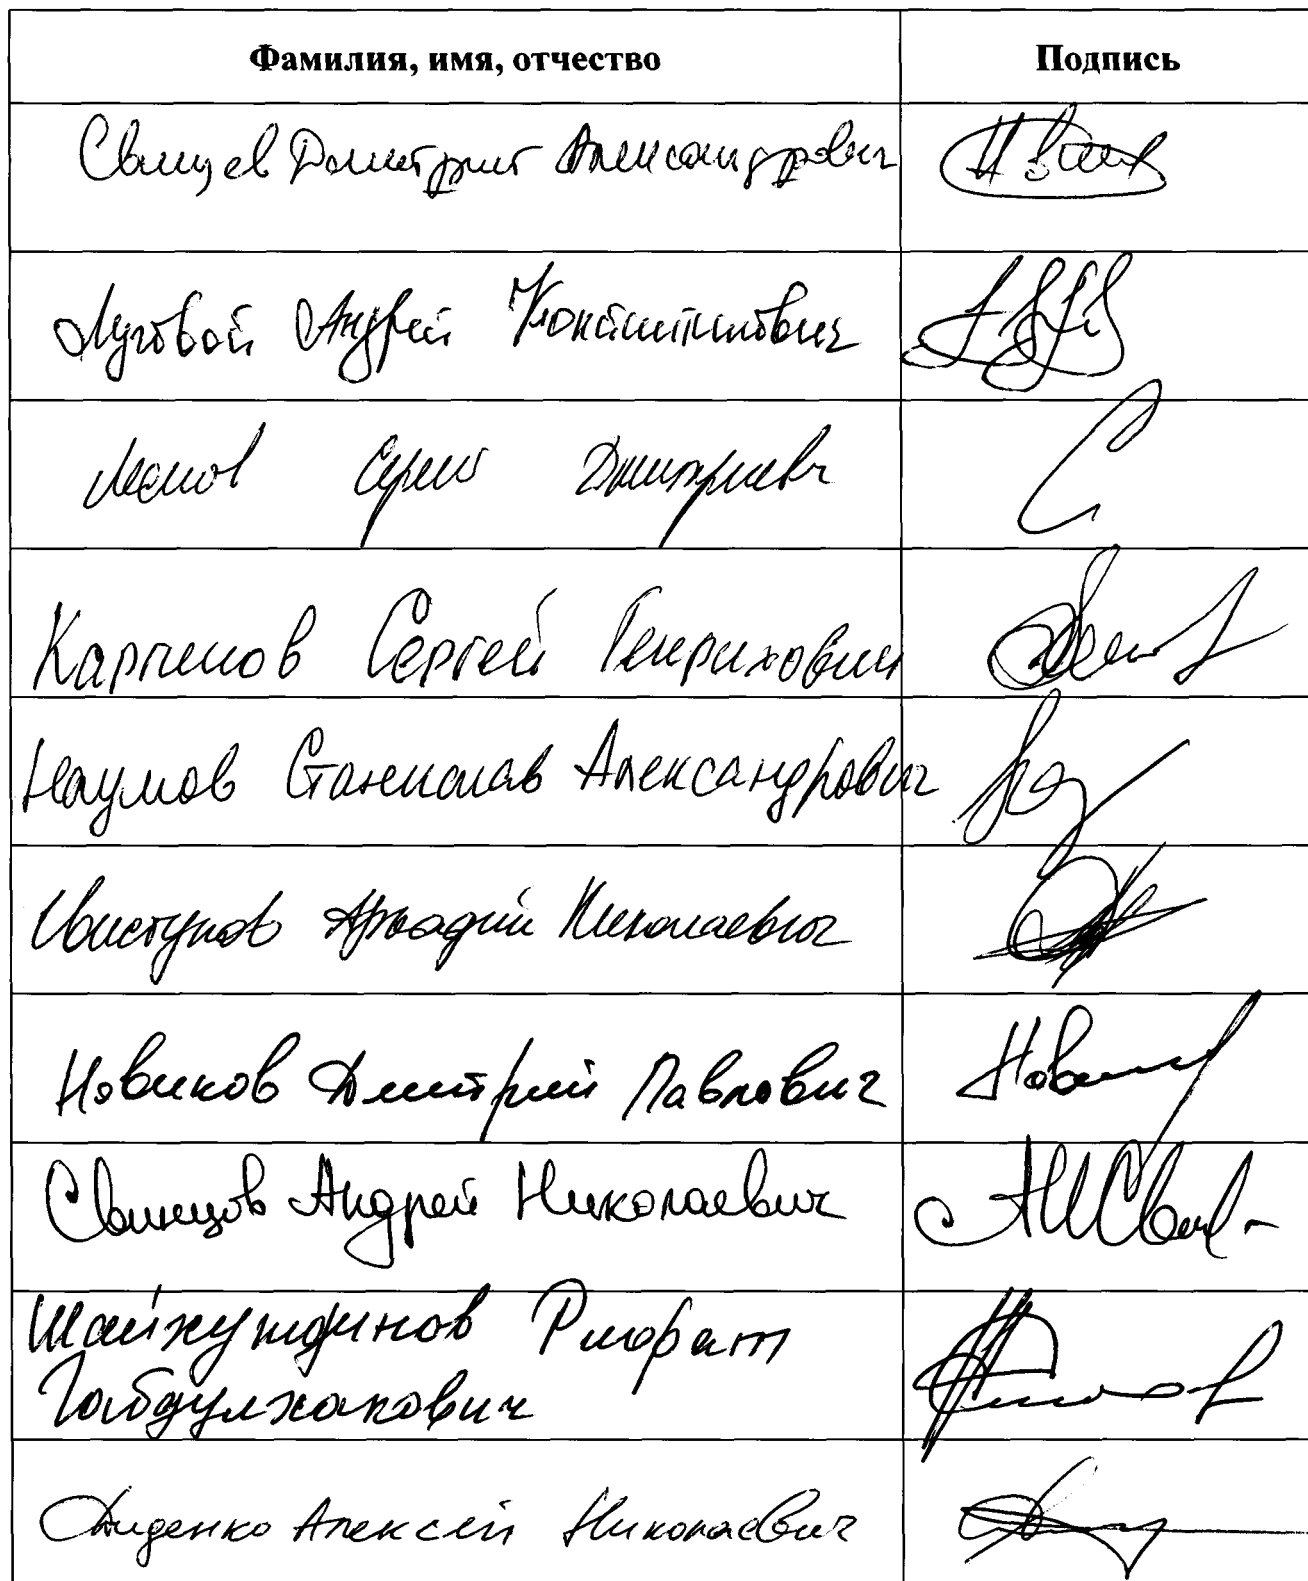 Фамилия, имя, отчество Подпись
Свищев Дмитрий Александрович
Луговой Андрей Константинович
Леонов Сергей Дмитриевич
Карпенов Сергей Генрихович
Наумов Станислав Александрович
Свистунов Аркадий Николаевич
Новиков Дмитрий Павлович
Свинцов Андрей Николаевич
Шайхутдинов Рифат
Габдулхакович
Диденко Алексей Николаевич